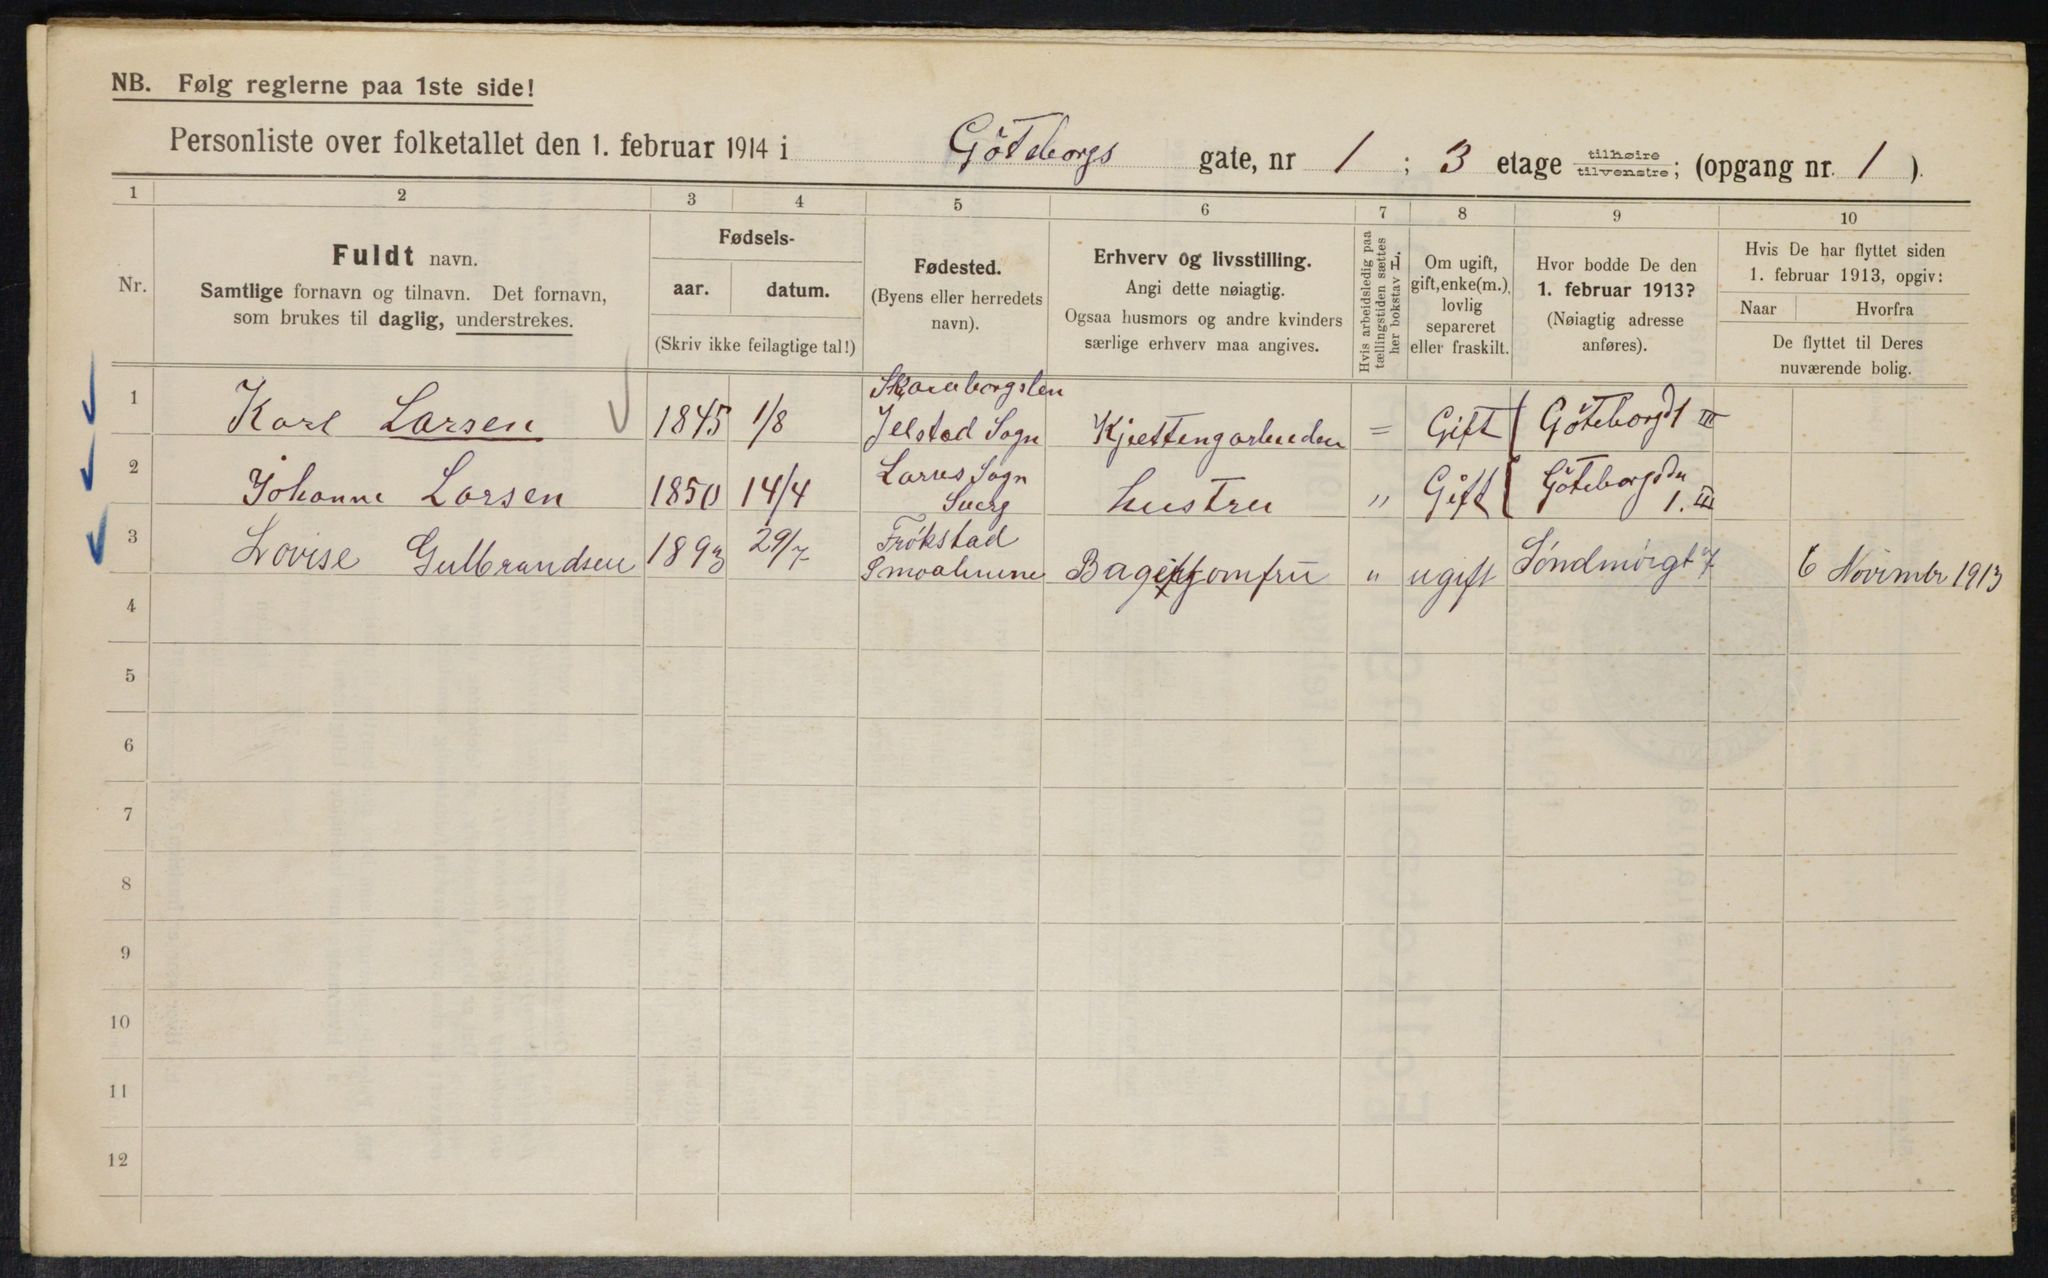 NB. Følg reglerne paa 1ste side!
Personliste over folketallet den 1. februar 1914 i Göteborgs gate, nr 1 ; 3 etage tilhøire/tilvenstre; (opgang nr. 1 ).
1 2 3 4 5 6 7 8 9 10
Nr.
Fuldt navn.
Samtlige fornavn og tilnavn. Det fornavn,
som brukes til daglig, understrekes.
Fødsels-
aar. datum.
(Skriv ikke feilagtige tal!)
Fødested.
(Byens eller herredets
navn).
Erhverv og livsstilling.
Angi dette nøiagtig.
Ogsaa husmors og andre kvinders
særlige erhverv maa angives.
Hvis arbeidsledig paa
tællingstiden sættes
her bokstav L.
Om ugift,
gift, enke(m.),
lovlig
separeret
eller fraskilt.
Hvor bodde De den
1. februar 1913?
(Nøiagtig adresse
anføres).
Hvis De har flyttet siden
1. februar 1913, opgiv:
Naar Hvorfra
De flyttet til Deres
nuværende bolig.
Skaraborgslen
1 Karl Larsen 1845 1/8 Sogn = Gift Göteborgs 1 III
2 Johanne Larsen 1850 14/4 Sogn
Sverg hustru " Gift Göteborgs
1. III
3 Lovise Gulbrandsen 1893 29/7 Trøkstad
ugift 7 6 November 1913
4
5
6
7
8
9
10
11
12